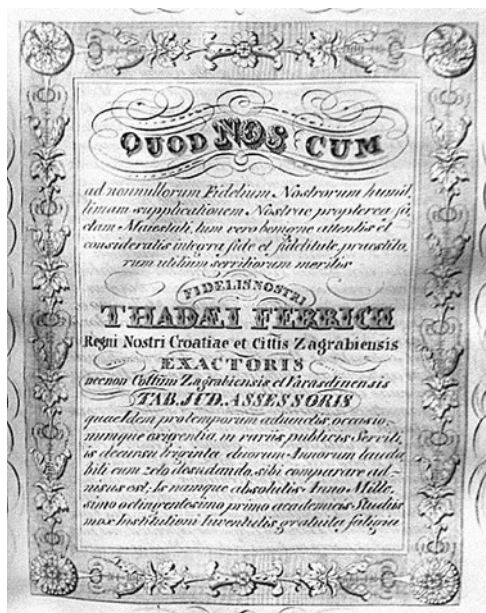 QUOD NOS CUM
ad nonnullorum Fidelium Nostrorum humil,
limam supplicationem Nostrae propterea fa,
ctam Maiestati, tum vero benigne attentis et
consideratis integra fide et fidelitate, praestito,
rum utilium servitiorum meritis
FIDELIS NOSTRI
THADÆI FERRICH
Regni Nostri Croatiae et Cittis Zagrabiensis
EXACTORIS
necnon Cottuum Zagrabiensis et Varasdinensis
TAB. JUD. ASSESSORIS
quae Idem pro temporum adjunctis, occasio,
numque exigentia, in variis publicis Serviti,
is decursu triginta duorum Annorum lauda,
bili cum zelo desudando, sibi comparare ad-
nisus est; Is namque absolutis Anno Mille,
simo octingentesimo primo academicis Studiis
mox Institutioni Iuventutis gratuita fatigia